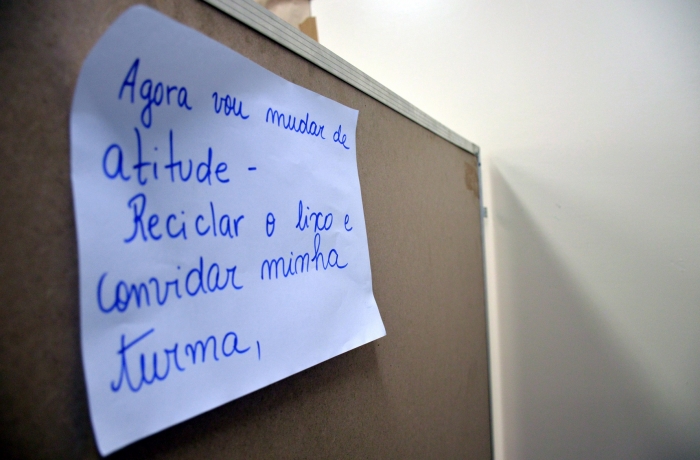 Agora vou mudar de
atitude -
Reciclar o lixo e
convidar minha
turma,